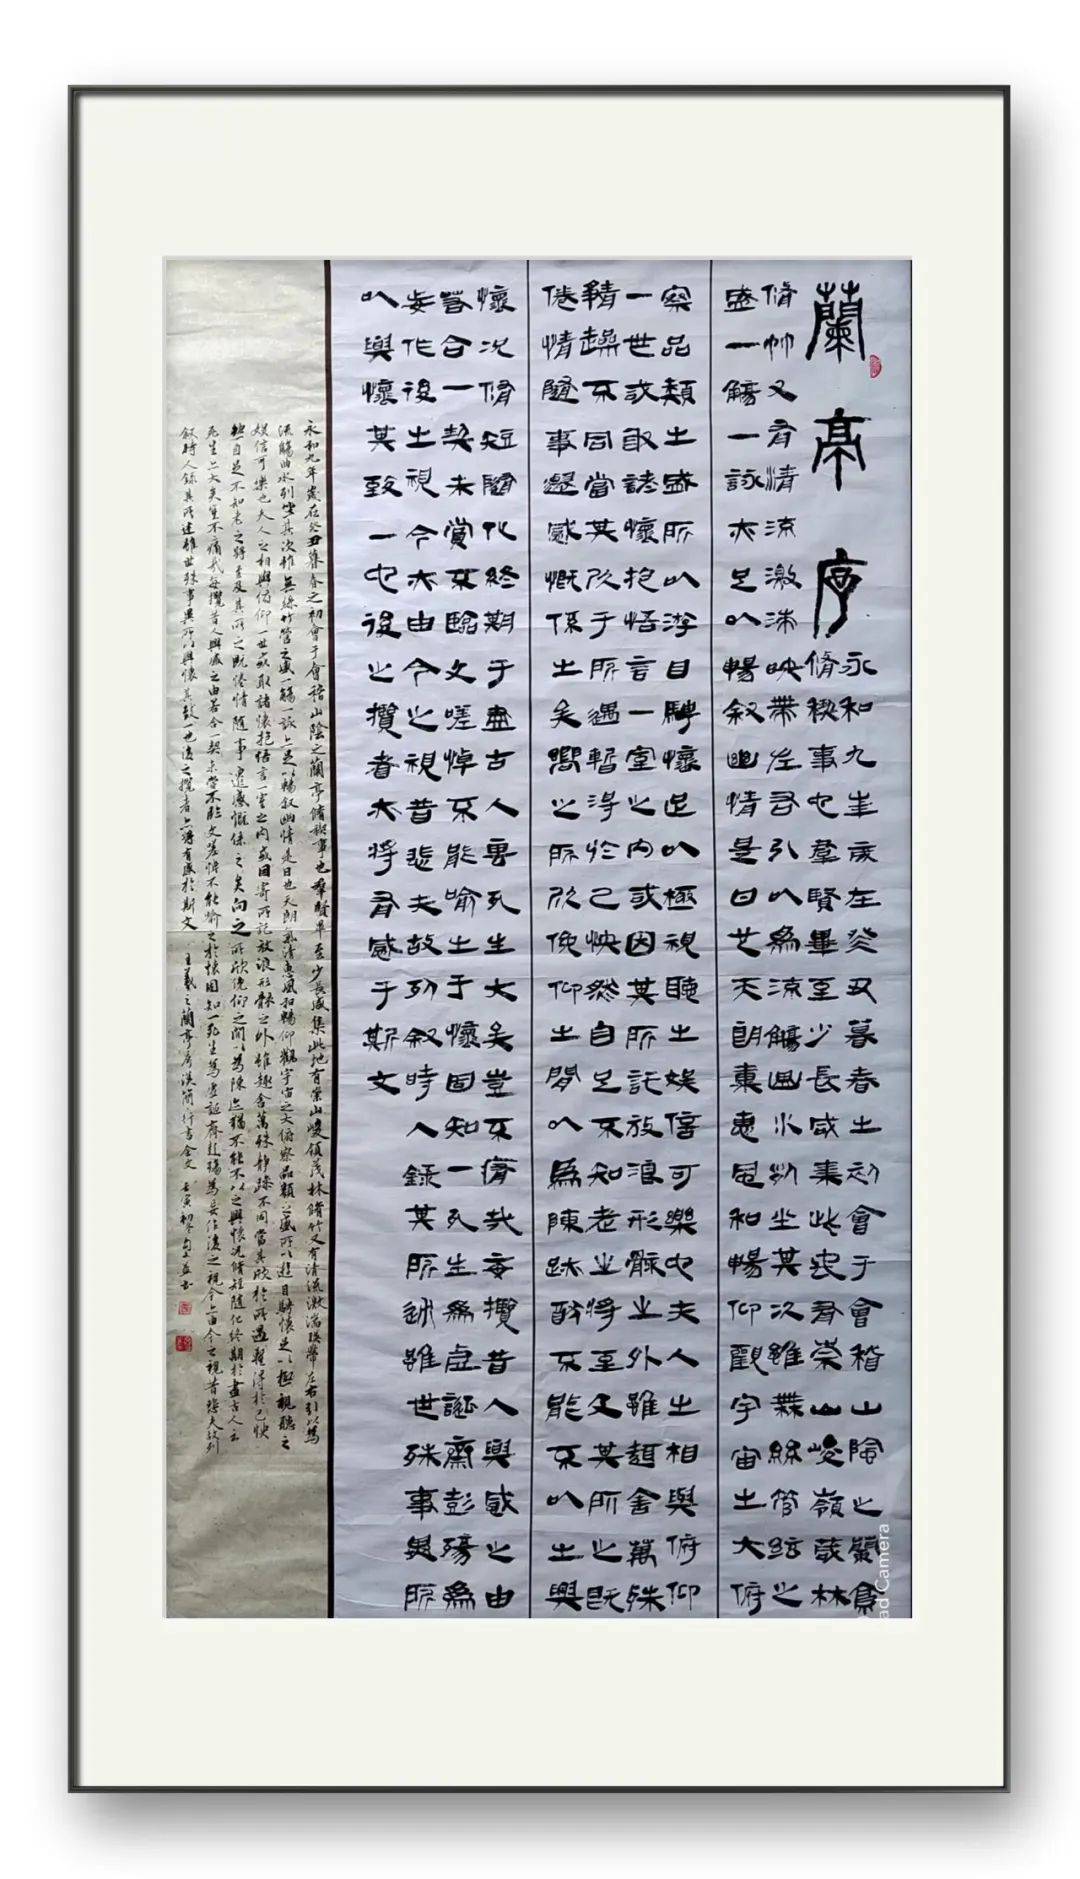 蘭亭序
永和九年歲在癸丑暮春之初會于會稽山陰之蘭亭
脩稧事也羣賢畢至少長咸集此地有崇山峻嶺茂林
脩竹又有清流激湍映帶左右引以為流觴曲水列坐其次雖無絲管絃之
盛一觴一詠亦足以暢叙幽情是日也天朗氣惠風和暢仰觀宇宙之大俯
察品類之盛所以游目騁懷足以極視聽之娛信可樂也夫人之相與俯仰
一世或取諸懷抱悟言一室之內或因其所託放浪形骸之外雖趣舍萬殊
静躁不同當其欣于所遇暫得於己怏然自足不知老之將至及其所之既
倦情隨事遷感慨係之矣嚮之所欣俛仰之間以為陳跡猶不能不以之興
懷況脩短隨化終期于盡古人云死生大矣豈不痛哉每攬昔人興感之由
若合一契未嘗不臨文嗟悼不能喻之于懷固知一死生為虛誕齊彭殤為
妄作後之視今亦由今之視昔悲夫故列叙時人錄其所述雖世殊事異所
以興懷其致一也後之攬者亦將有感于斯文
永和九年歲在癸丑暮春之初會于會稽山陰之蘭亭脩稧事也羣賢畢至少長咸集此地有崇山峻領茂林脩竹又有清流激湍暎帶左右引以為
流觴曲水列坐其次雖無絲竹管之盛一觴一詠亦足以暢叙幽情是日也天朗氣清惠風和暢仰觀宇宙之大俯察品類之盛所以遊目騁懷足以極視聽之
娛信可樂也夫人之相與俯仰一世或取諸懷抱悟言一室之內或因寄所託放浪形骸之外雖趣舍萬殊静躁不同當其欣於所遇暫得於己快
然自足不知老之將至及其所之既惓情隨事遷感慨係之矣向之所欣俛仰之間以為陳迹猶不能不以之興懷況脩短隨化終期於盡古人云
死生亦大矣豈不痛哉每攬昔人興感之由若合一契未嘗不臨文嗟悼不能喻之於懷固知一死生為虛誕齊彭殤為妄作後之視今亦由今之視昔悲夫故列
叙時人錄其所述雖世殊事異所以興懷其致一也後之攬者亦將有感於斯文 王羲之蘭亭序漢簡行書全文 壬寅初冬
ad Camera